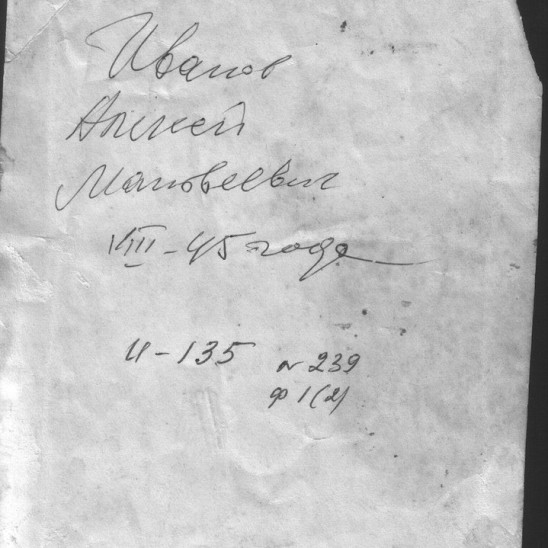 Иванов
Алексей
Матвеевич
VIII-45 года
И-135
№ 239
ф 1(2)